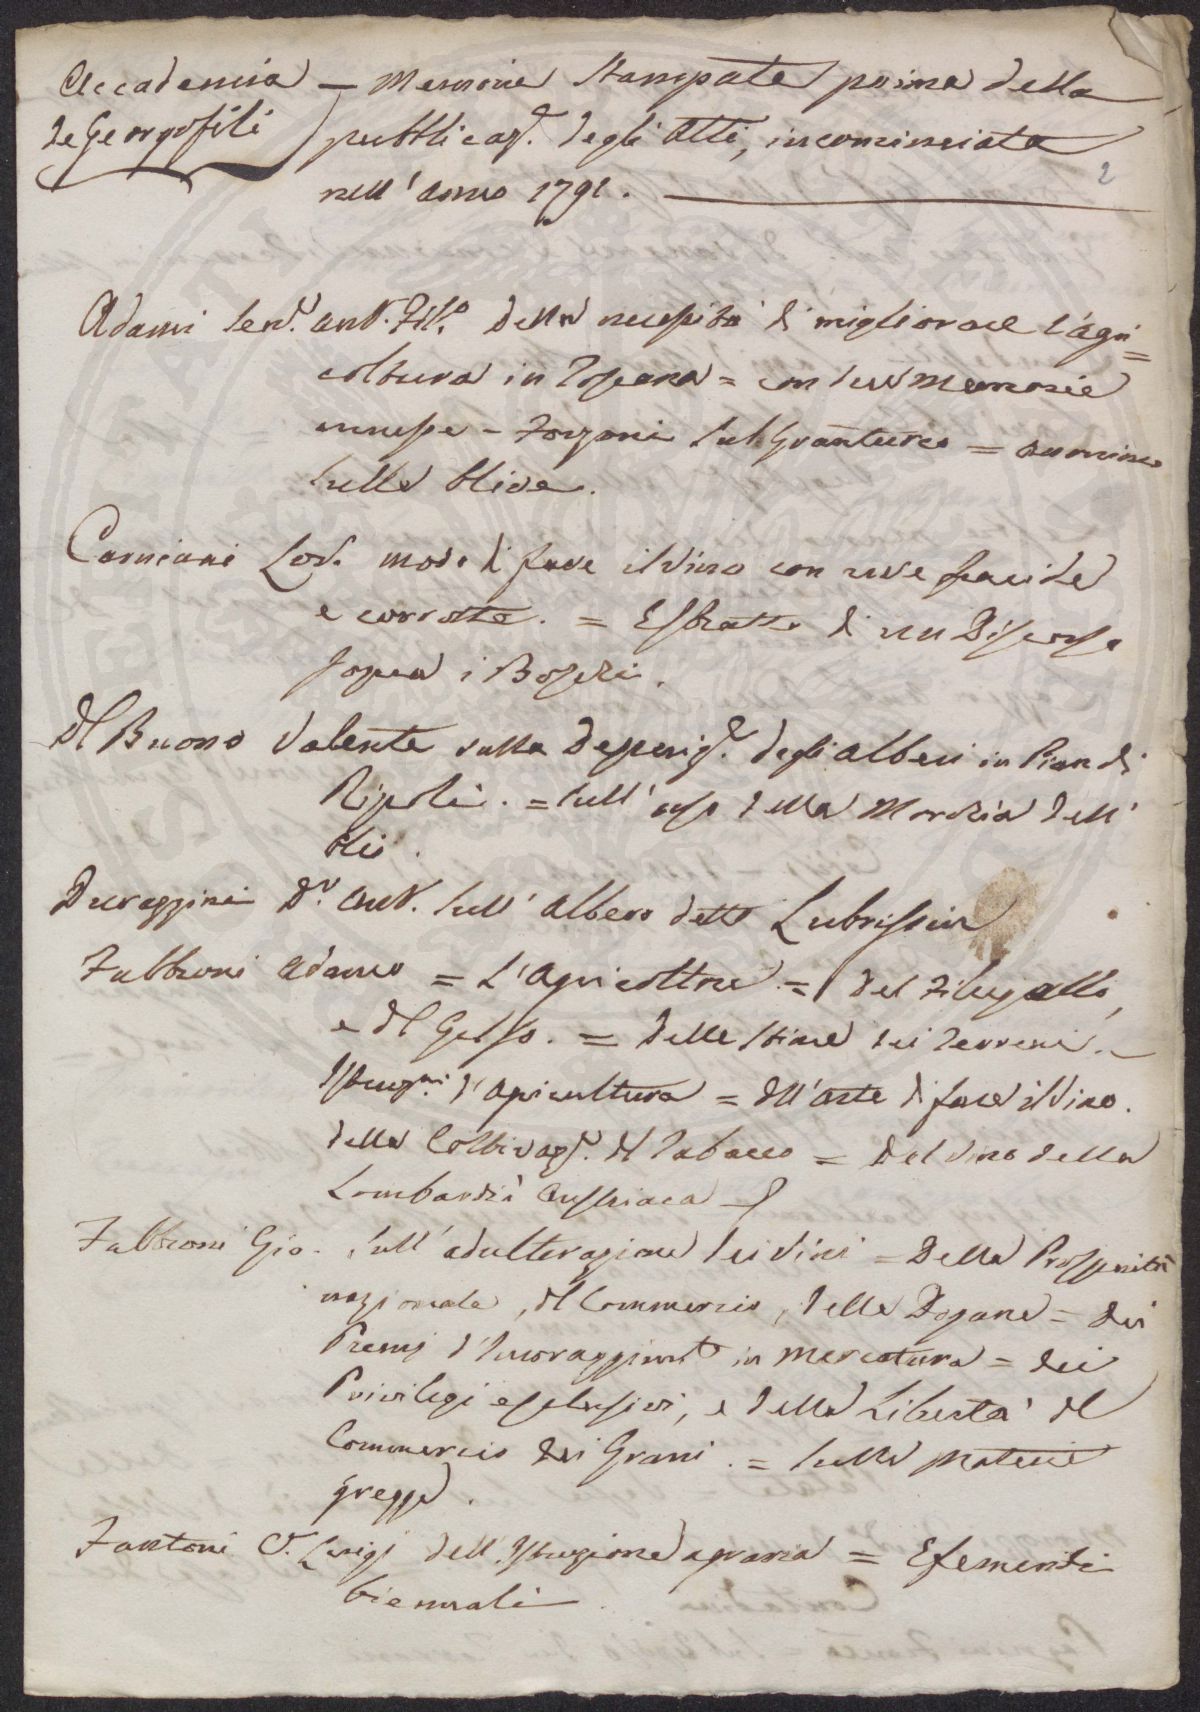 Accademia — Memorie Stampate prima della
de Georgofili pubblicaz.e degli Atti, incominciata
nell' anno 1791.
2
Adami Sen.r Ant. Fil.o Della necessità di migliorare l'agri=
coltura in Toscana = con due Memorie
annesse - Zorzoni sul Granturco = 
sulle Olive.
Carniani Lod. modo di fare il vino con uve fracide
e corrotte. = Estratto di un Discorso
sopra i Boschi.
Del Buono Valente sulla Desperiz.e degli alberi in Pian di
Ripoli. = sull' uso della Morchia dell'
Olio.
Duraggini D.r Ant. sull' albero detto
Fabbroni Adamo = L'Agricoltore = Del Filugello,
e del Gelso. = delle Stime dei Terreni. -
Istruz.ni d'agricultura = dell'arte di fare il Vino.
della Coltivaz.e del Tabacco = Del vino della
Lombardia Austriaca
Fabbroni Gio. sull' adulterazione dei Vini = Della Prosperità
nazionale, del Commercio, delle Dogane = dei
Premj d'Incoraggiam.to in Mercatura = dei
Privilegi esclusivi, e della Libertà del
Commercio dei Grani. = sulle Materie
gregge.
Fantoni C. Luigi dell' Istruzione agraria = Efemeridi
biennali.